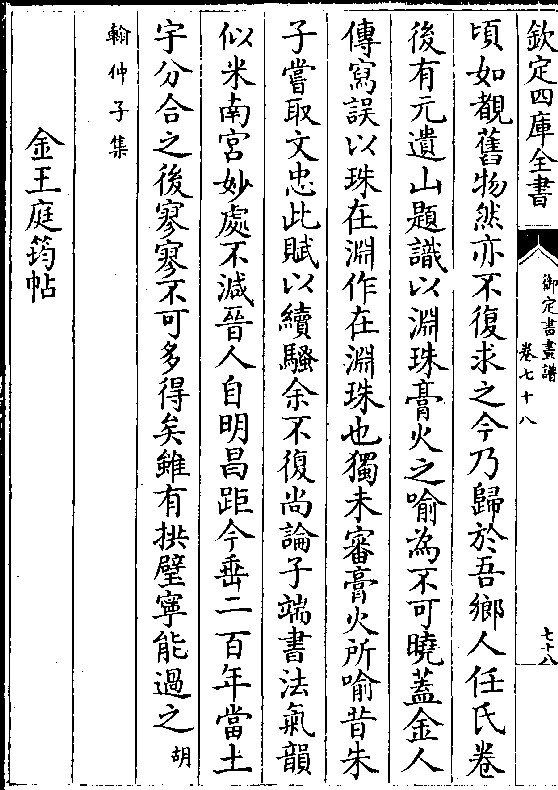 欽定四庫全書
御定書畫譜
卷七十八
七十八
頃如覩舊物然亦不復求之今乃歸於吾鄉人任氏卷
後有元遺山題識以淵珠膏火之喻為不可曉蓋金人
傳寫誤以珠在淵作在淵珠也獨未審膏火所喻昔朱
子嘗取文忠此賦以續騷余不復尚論子端書法氣韻
似米南宮妙處不減晉人自明昌距今垂二百年當土
宇分合之後寥寥不可多得矣雖有拱璧寧能過之胡
翰仲子集
金王庭筠帖